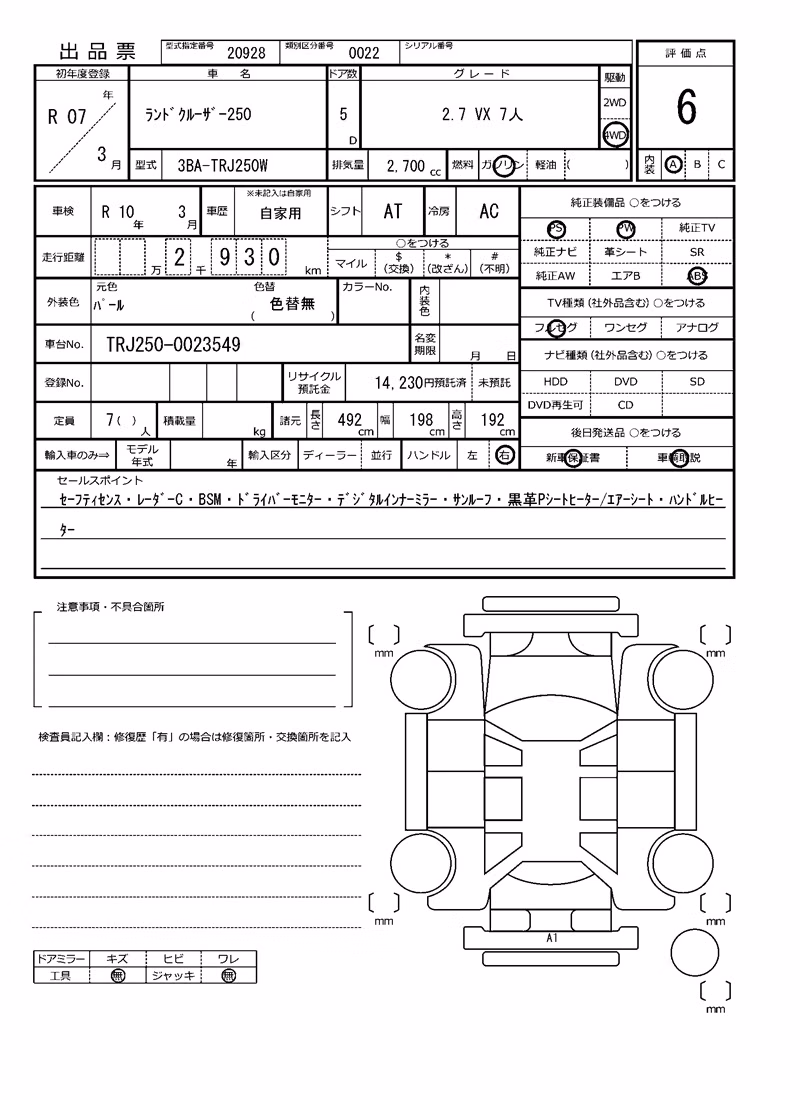 出品票
型式指定番号 20928 類別区分番号 0022 シリアル番号
評価点
6
内装 A B C
初年度登録 車名 ドア数 グレード 駆動
R 07 年 3 月
ﾗﾝﾄﾞｸﾙｰｻﾞｰ250
5 D
2.7 VX 7人
2WD
4WD
型式 3BA-TRJ250W 排気量 2,700 cc 燃料 ガソリン 軽油 ( )
車検 R 10 年 3 月 車歴 ※未記入は自家用 自家用 シフト AT 冷房 AC
走行距離 万 2 千 9 3 0 km
○をつける
マイル $ (交換) * (改ざん) # (不明)
外装色 元色 ﾊﾟｰﾙ 色替 色替無 ( ) カラーNo. 内装色
車台No. TRJ250-0023549 名変期限 月 日
登録No. リサイクル預託金 14,230円預託済 未預託
定員 7( ) 人 積載量 kg 諸元 長さ 492 cm 幅 198 cm 高さ 192 cm
輸入車のみ⇒ モデル年式 年 輸入区分 ディーラー 並行 ハンドル 左 右
純正装備品 ○をつける
PS PW 純正TV
純正ナビ 革シート SR
純正AW エアB ABS
TV種類 (社外品含む) ○をつける
フルセグ ワンセグ アナログ
ナビ種類 (社外品含む) ○をつける
HDD DVD SD
DVD再生可 CD
後日発送品 ○をつける
新車保証書 車輌取説
セールスポイント
ｾｰﾌﾃｨｾﾝｽ・ﾚｰﾀﾞｰC・BSM・ﾄﾞﾗｲﾊﾞｰﾓﾆﾀｰ・ﾃﾞｼﾞﾀﾙｲﾝﾅｰﾐﾗｰ・ｻﾝﾙｰﾌ・黒革Pｼｰﾄﾋｰﾀｰ/ｴｱｰｼｰﾄ・ﾊﾝﾄﾞﾙﾋｰ
ﾀｰ
注意事項・不具合箇所
検査員記入欄：修復歴「有」の場合は修復箇所・交換箇所を記入
ドアミラー キズ ヒビ ワレ
工具 無 ジャッキ 無
mm
mm
mm
mm
A1
mm